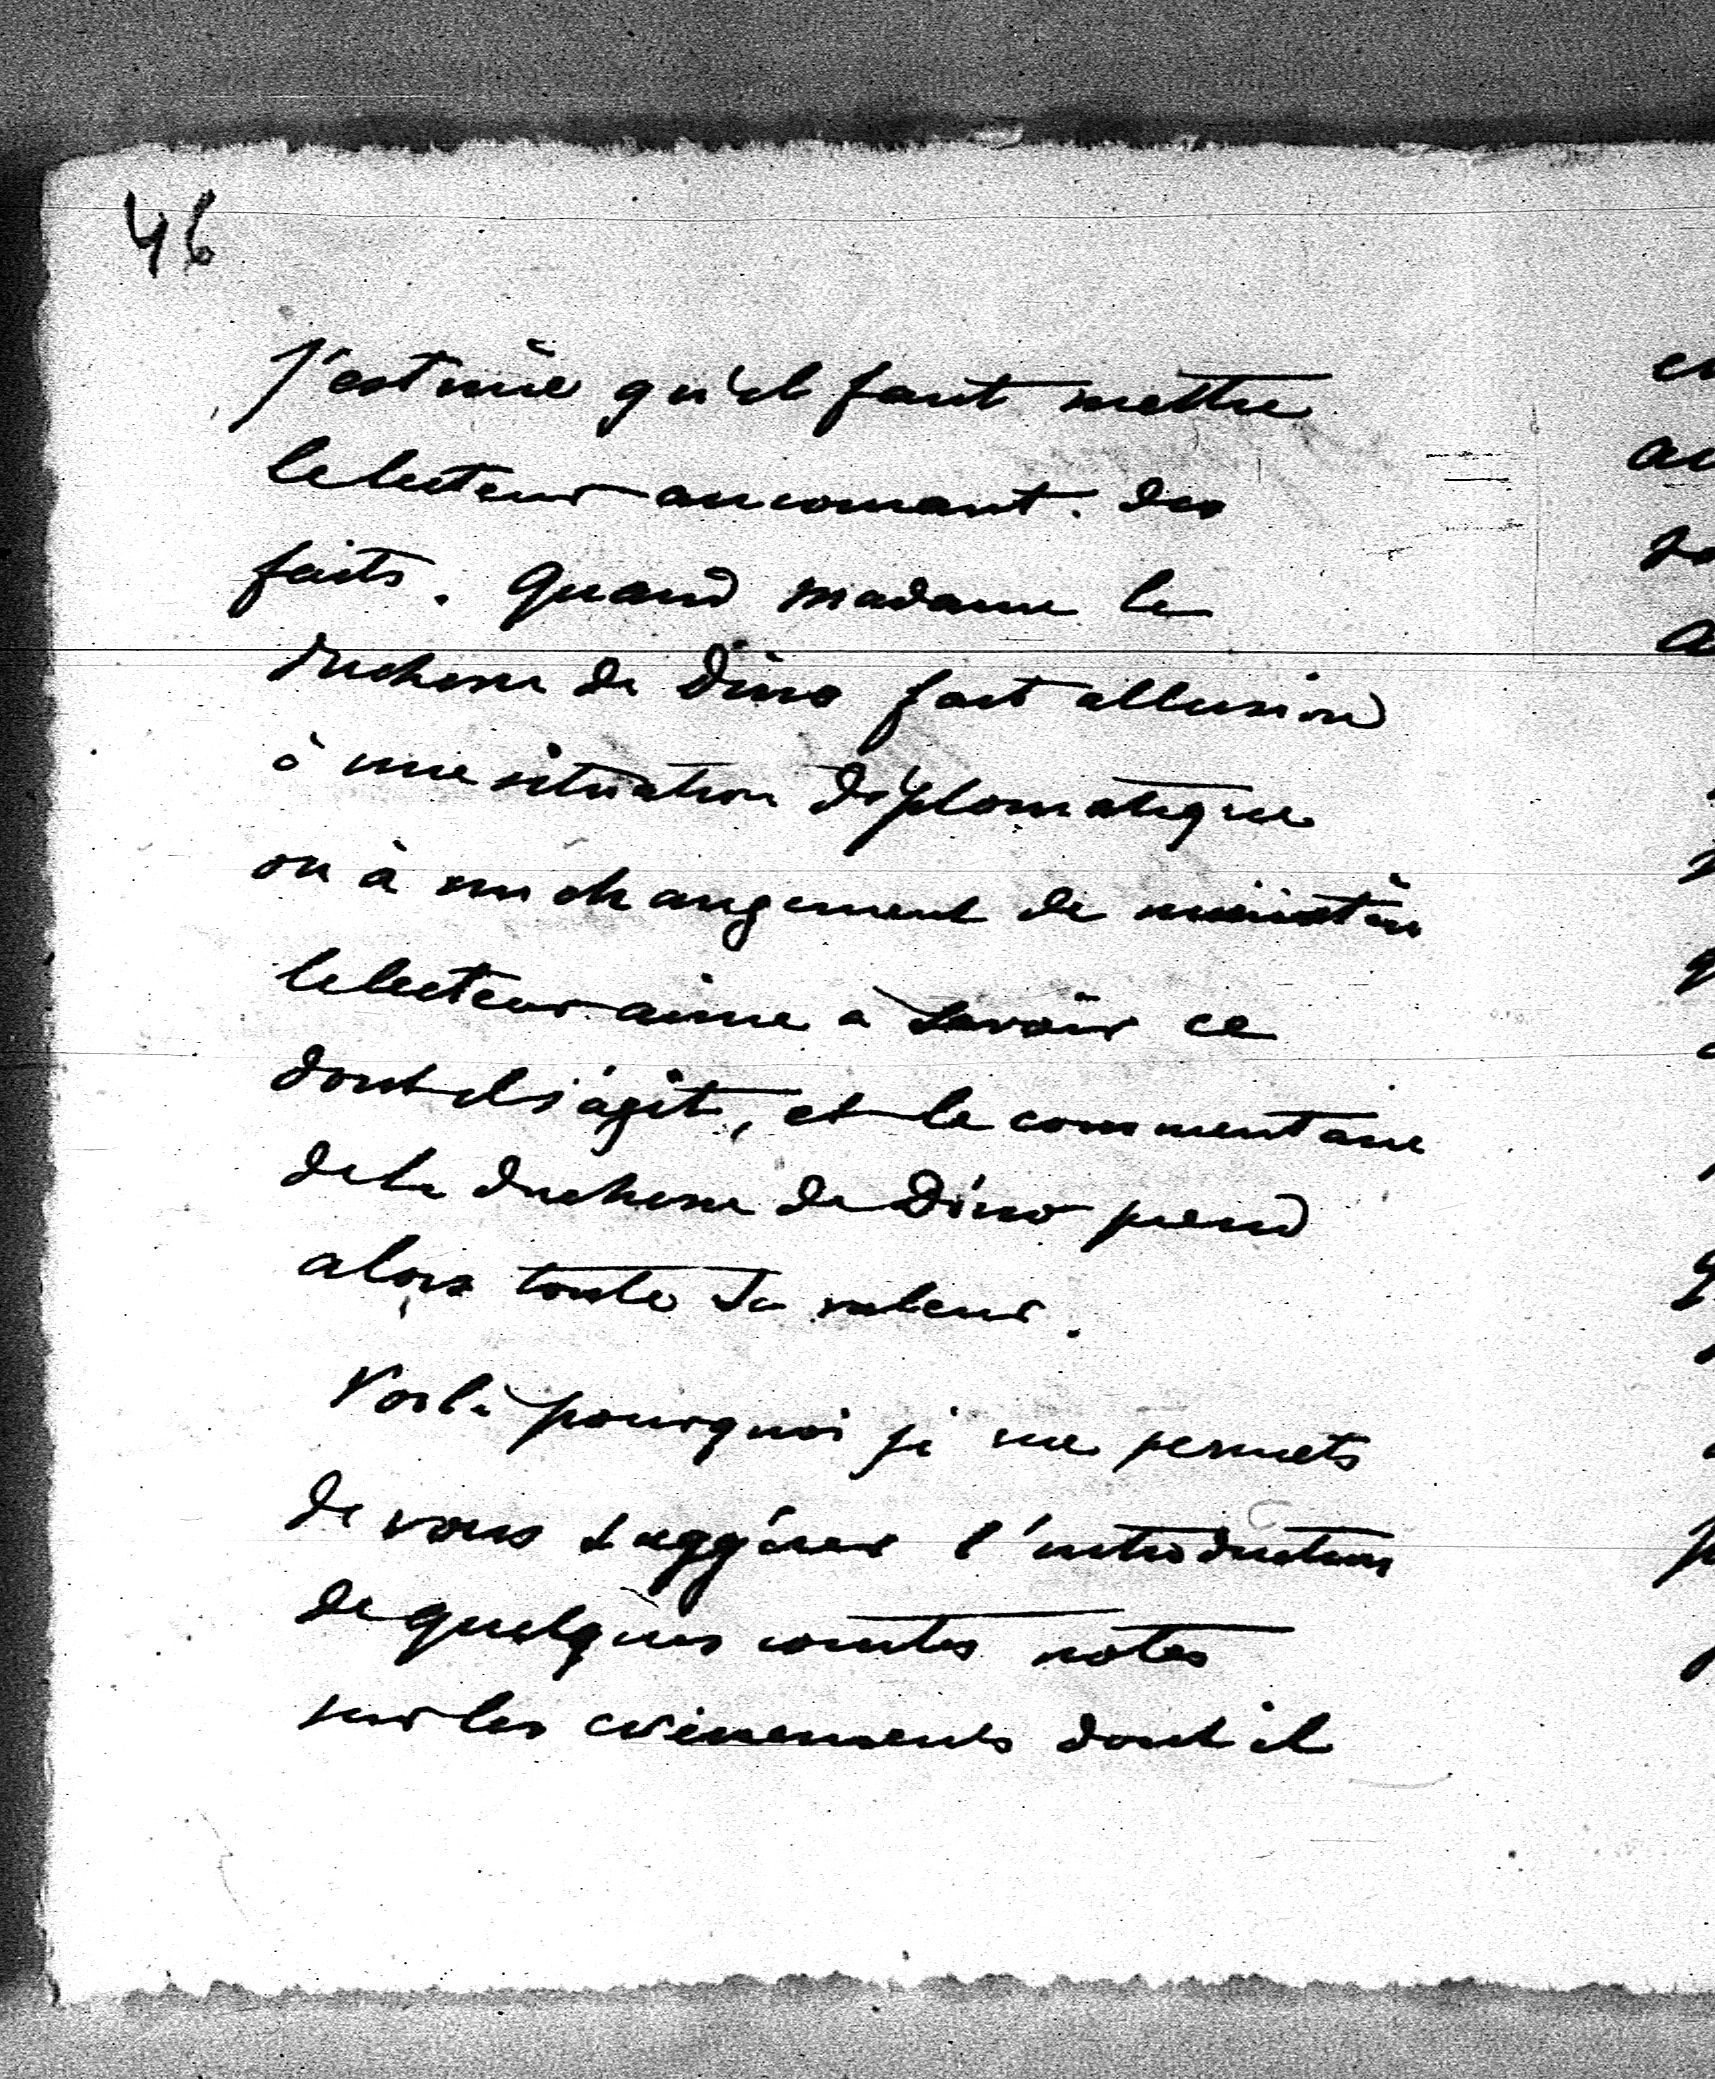 46
J'estime qu'il faut mettre
le lecteur au courant des
faits. Quand madame la
duchesse de Dino fait allusion
à une situation diplomatique
ou à un changement de ministère
le lecteur aime à savoir ce
dont il s'agit, et le commentaire
de la duchesse de Dino prend
alors toute sa valeur.
Voilà pourquoi je me permets
de vous suggérer l'introduction
de quelques courtes notes
sur les événements dont il